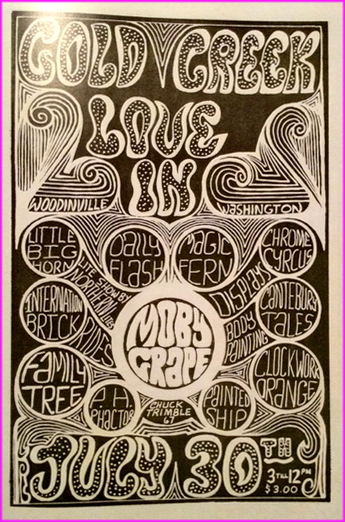 GOLD CREEK
LOVE
IN
WOODINVILLE
WASHINGTON
LITTLE
BIG
HORN
DAILY
FLASH
MAGIC
FERN
CHROME
CYRCUS
LITE SHOW BY
NORTHERN LITES
DISPLAYS
INTERNATION
BRICK
RIDES
MOBY
GRAPE
BODY
PAINTING
CANTEBURY
TALES
FAMILY
TREE
P.H.
PHACTOR
CHUCK
TRIMBLE
67
PAINTED
SHIP
CLOCKWORK
ORANGE
JULY 30TH
3 TILL 12PM
$3.00